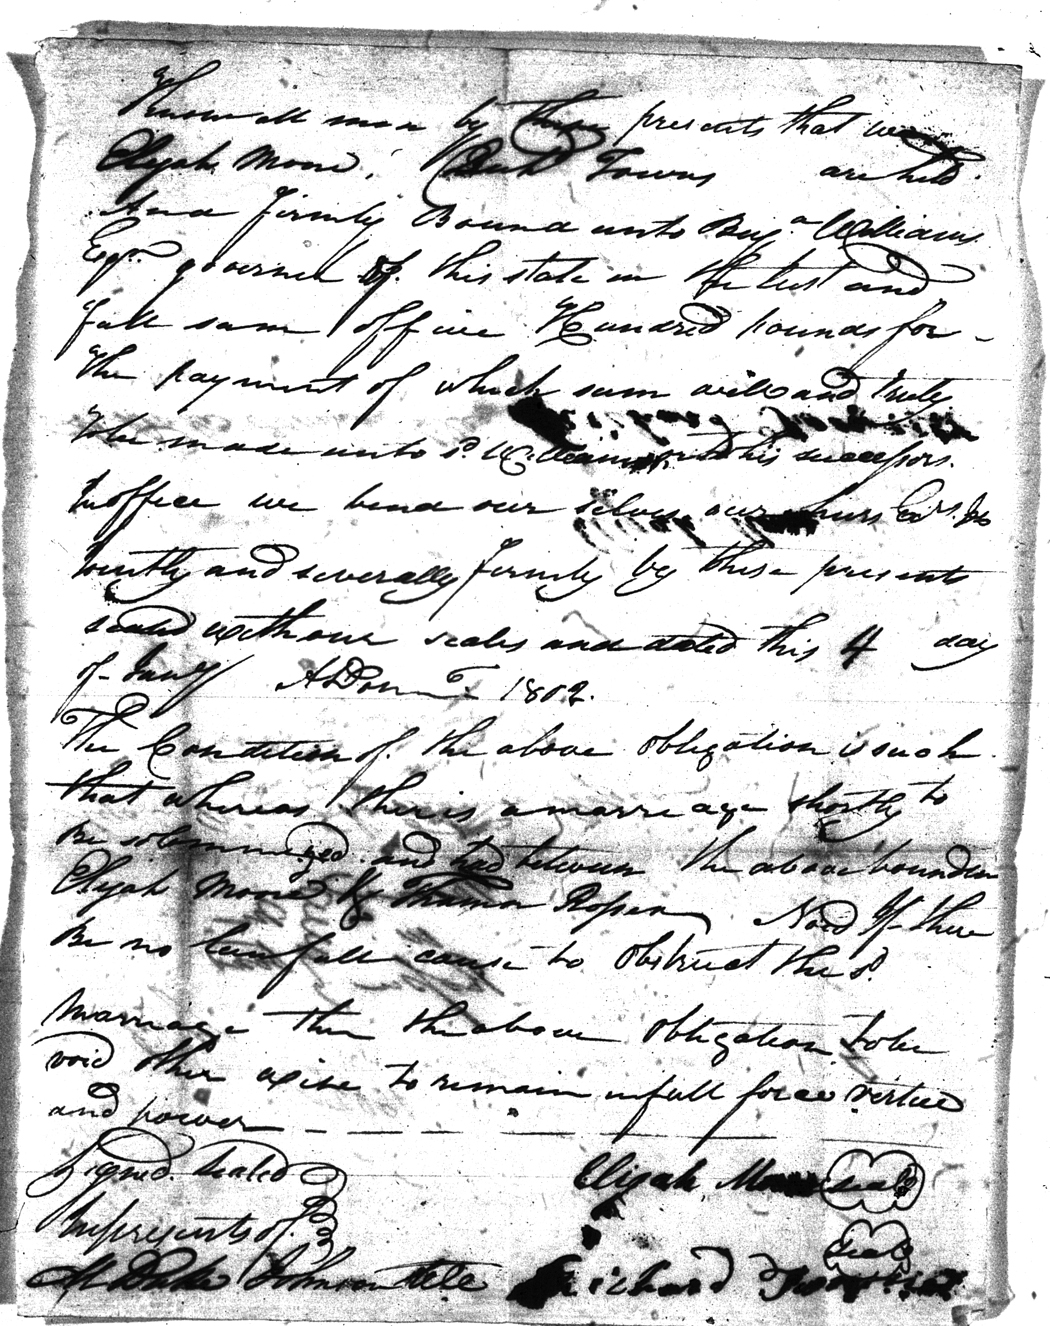 Know all men by these presents that we
Elijah Moore, Towns are held
And firmly Bound unto Benj.a Williams
Esqr. governer of this state in the Just and
full sum of five Hundred pounds for
the payment of which sum will and truly
to be made unto sd. Williams and his successors
In office we bind our selves our heirs Exrs. &c
Jointly and severally firmly by these presents
sealed with our seales and dated this 4 day
of Jany A Dom 1802.
The Condition of the above obligation is such
that whereas ther is a marreage shortly to
Be solemnized and had between the above bounden
Elijah Moore & Rosser Now If there
Be no lawfull cause to obstruct the sd.
Marriage then the above obligation to be
void other wise to remain in full force virtue
and power
Signed Sealed
In presents of
Elijah Moore seal
seal
Richard